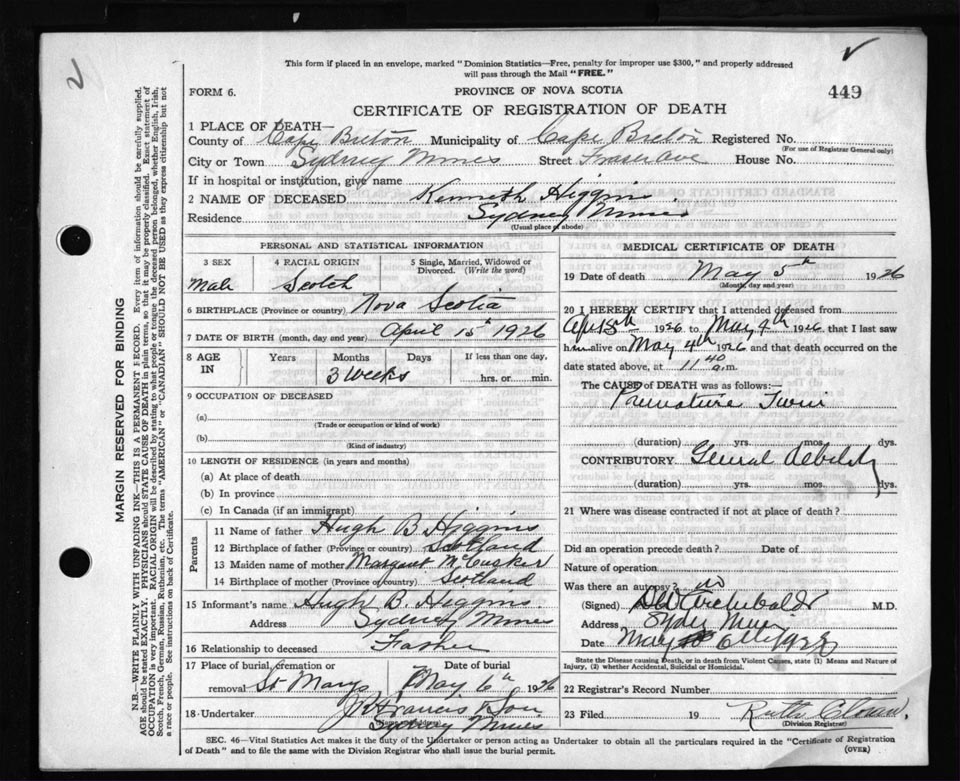 This form if placed in an envelope, marked "Dominion Statistics—Free, penalty for improper use $300," and properly addressed
will pass through the Mail "FREE."
FORM 6.
PROVINCE OF NOVA SCOTIA
449
CERTIFICATE OF REGISTRATION OF DEATH
1 PLACE OF DEATH—
County of Cape Breton Municipality of Cape Breton Registered No.
(For use of Registrar General only)
City or Town Sydney Mines Street Fraser Ave House No.
If in hospital or institution, give name
2 NAME OF DECEASED Kenneth Higgins
Residence Sydney Mines
(Usual place of abode)
PERSONAL AND STATISTICAL INFORMATION
3 SEX 4 RACIAL ORIGIN 5 Single, Married, Widowed or
Divorced. (Write the word)
Male Scotch
6 BIRTHPLACE (Province or country) Nova Scotia
7 DATE OF BIRTH (month, day and year) April 15th 1926
8 AGE IN Years Months Days If less than one day,
3 Weeks hrs. or min.
9 OCCUPATION OF DECEASED
(a)
(Trade or occupation or kind of work)
(b)
(Kind of industry)
10 LENGTH OF RESIDENCE (in years and months)
(a) At place of death
(b) In province
(c) In Canada (if an immigrant)
Parents
11 Name of father Hugh B Higgins
12 Birthplace of father (Province or country) Scotland
13 Maiden name of mother Margaret McCusker
14 Birthplace of mother (Province or country) Scotland
15 Informant's name Hugh B. Higgins
Address Sydney Mines
16 Relationship to deceased Father
17 Place of burial, cremation or Date of burial
removal St Marys May 6th 1926
18 Undertaker J. Francis & Son
Sydney Mines
MEDICAL CERTIFICATE OF DEATH
19 Date of death May 5th 1926
(Month, day and year)
20 I HEREBY CERTIFY that I attended deceased from
1926 to May 4th 1926 that I last saw
him alive on May 4th 1926 and that death occurred on the
date stated above, at 11 40 a.m.
The CAUSE of DEATH was as follows:—
Premature Twin
(duration) yrs. mos. dys.
CONTRIBUTORY General Debility
(duration) yrs. mos. dys.
21 Where was disease contracted if not at place of death?
Did an operation precede death? Date of
Nature of operation
Was there an autopsy? no
(Signed) Archibald M.D.
Address Sydney Mines
Date May 6th 1926
State the Disease causing Death, or in death from Violent Causes, state (1) Means and Nature of
Injury, (2) whether Accidental, Suicidal or Homicidal.
22 Registrar's Record Number
23 Filed 19 Ruth
(Division Registrar)
SEC. 46—Vital Statistics Act makes it the duty of the Undertaker or person acting as Undertaker to obtain all the particulars required in the "Certificate of Registration
of Death" and to file the same with the Division Registrar who shall issue the burial permit.
(OVER)
MARGIN RESERVED FOR BINDING
N.B.—WRITE PLAINLY WITH UNFADING INK—THIS IS A PERMANENT RECORD. Every item of information should be carefully supplied.
AGE should be stated EXACTLY. PHYSICIANS should STATE CAUSE OF DEATH in plain terms, so that it may be properly classified. Exact statement of
OCCUPATION is very important. RACIAL ORIGIN will be described by stating to what people or tongue the deceased person belonged, whether English, Irish,
Scotch, French, German, Russian, Ruthenian, etc. The terms "AMERICAN" or "CANADIAN" SHOULD NOT BE USED as they express citizenship but not
a race or people. See instructions on back of Certificate.